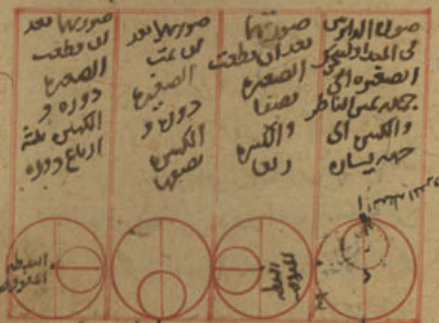 صورة الدائرتين
في المبدأ وليتحرك
الصغيرة الى
جهة يمين الناظر
والكبيرة الى
جهة يساره
النقطة
صورتهما
بعد ان قطعت
الصغيرة
نصفا
والكبيرة
ربعا
النقطة
صورتهما بعد
ان تمت
الصغيرة
دورة و
الكبيرة
نصفها
صورتهما بعد
ان قطعت
الصغيرة
دورة و
الكبيرة ثلثة
ارباع دورة
النقطة
المفروضة